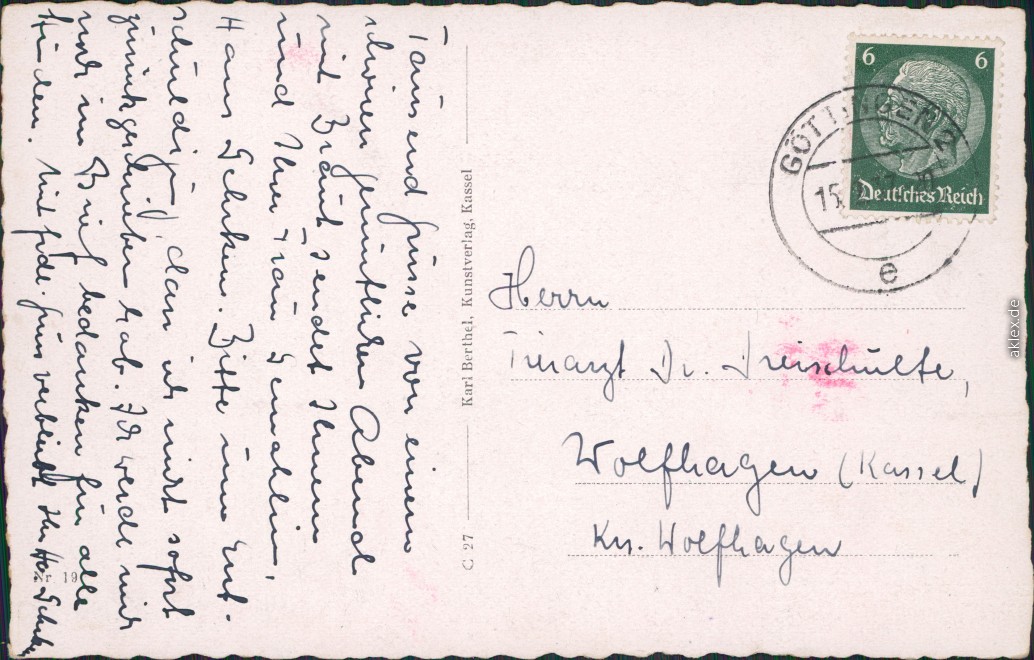 Tausend Grüsse von einem
schönen gemütlichen Abend
mit Braut sendet Ihnen
und Ihrer Frau Gemahlin,
Hans Bitte um Ent-
schuldigung, dass ich nicht sofort
zurückgeschrieben hab. Ich werde mich
noch im Brief bedanken für alle
Mit frdl. Gruss verbleibt Ihr
Nr. 19
C 27 Karl Berthel, Kunstverlag, Kassel
6 6
Deutsches Reich
GÖTTINGEN 2
15.
e
Herrn
Tierarzt Dr. Dreischulte,
Wolfhagen (Kassel)
Krs. Wolfhagen
aklex.de